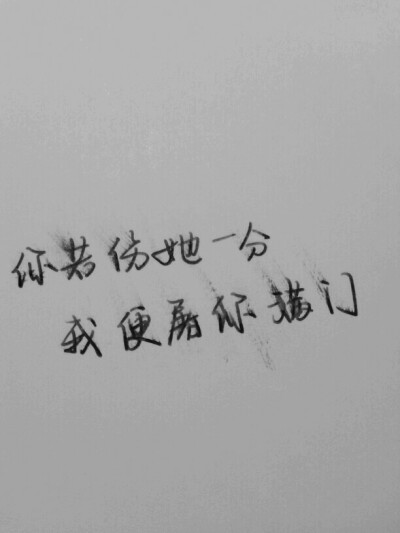 你若伤她一分
我便屠你满门